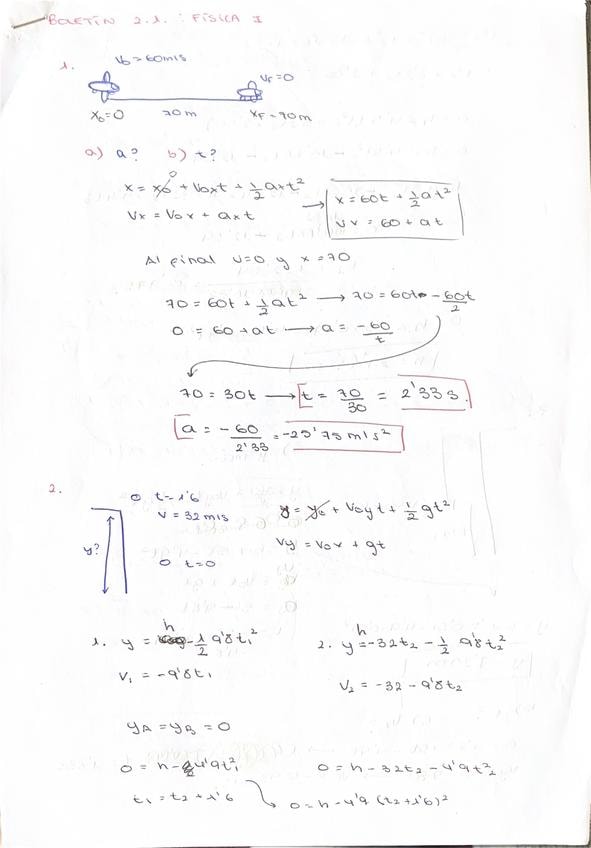 BOLETÍN 2.1. : FÍSICA I
1.
V0 = 60 m/s
VF = 0
X0 = 0 70 m XF = 70m
a) a? b) t?
x = x0 + V0xt + 1/2 axt²
0
Vx = V0x + axt
→ x = 60t + 1/2 at²
Vx = 60 + at
Al final v=0 y x=70
70 = 60t + 1/2 at² → 70 = 60t - 60t/2
0 = 60 + at → a = -60/t
70 = 30t → t = 70/30 = 2'33 s.
a = -60/2'33 = -25'75 m/s²
2.
t = 1'6
V = 32 m/s
y?
t = 0
y = y0 + V0yt + 1/2 gt²
Vy = V0x + gt
1. y = h - 1/2 9'8t1²
V1 = -9'8t1
2. y = h - 32t2 - 1/2 9'8t2²
V2 = -32 - 9'8t2
yA = yB = 0
0 = h - 4'9t1²
0 = h - 32t2 - 4'9t2²
t1 = t2 + 1'6
0 = h - 4'9 (t2 + 1'6)²